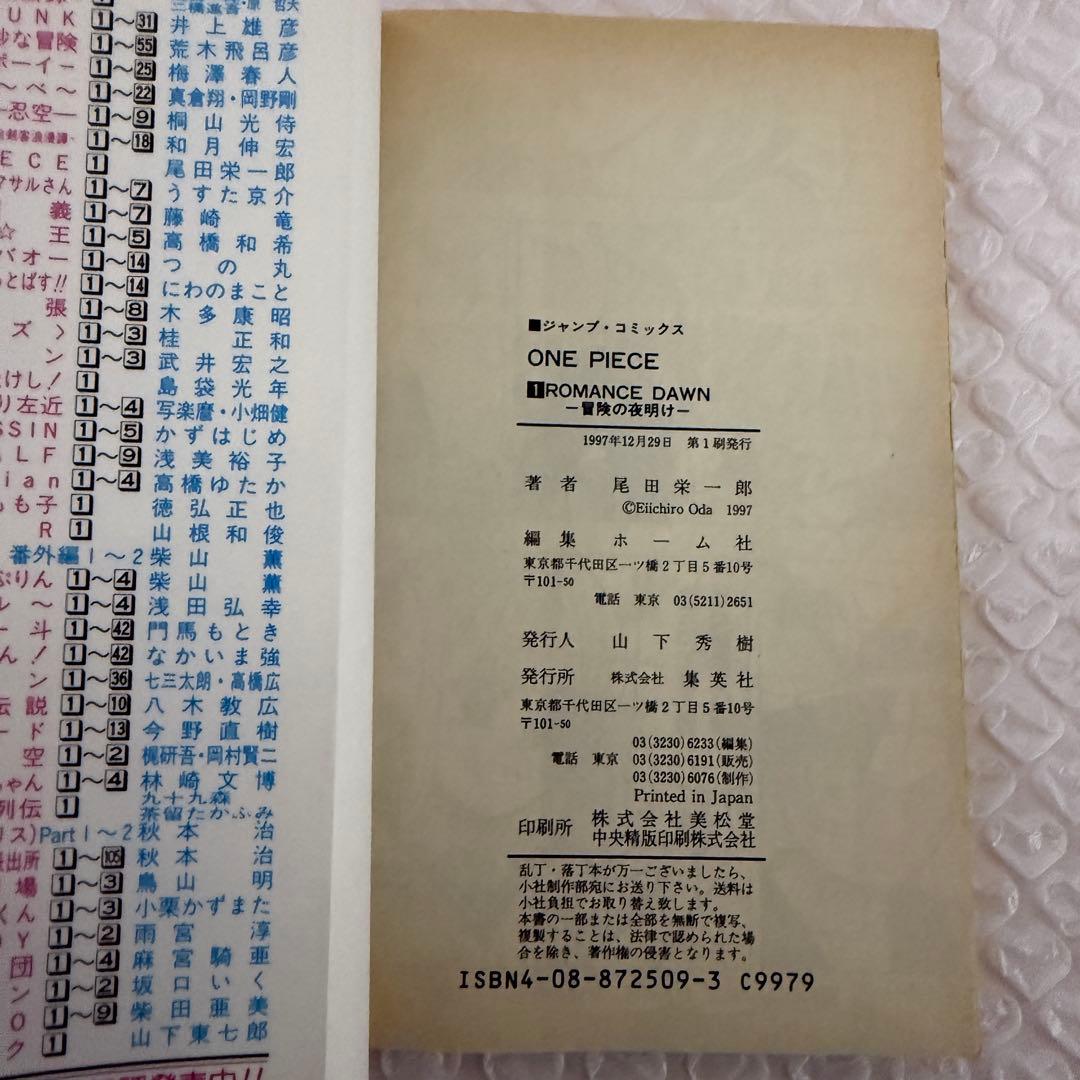 三條陸・原 哲夫
UNK 1〜31 井上雄彦
妙な冒険 1〜55 荒木飛呂彦
ボーイ− 1〜25 梅澤春人
〜べ〜 1〜22 真倉翔・岡野剛
−忍空− 1〜9 桐山光侍
剣客浪漫譚− 1〜18 和月伸宏
ECE 1 尾田栄一郎
マサルさん 1〜7 うすた京介
義 1〜7 藤崎竜
☆王 1〜5 高橋和希
バオー 1〜14 つの丸
っとばす!! 1〜14 にわのまこと
張 1〜8 木多康昭
ズ〉 1〜3 桂正和
ン 1〜3 武井宏之
たけし! 1 島袋光年
り左近 1〜4 写楽麿・小畑健
SSIN 1〜5 かずはじめ
LF 1〜9 浅美裕子
ian 1〜4 高橋ゆたか
もも子 1 徳弘正也
R 1 山根和俊
番外編1〜2 柴山薫
ぷりん 1〜4 柴山薫
ル〜 1〜4 浅田弘幸
斗 1〜42 門馬もとき
ん! 1〜42 なかいま強
ン 1〜36 七三太朗・高橋広
伝説 1〜10 八木教広
ード 1〜13 今野直樹
空 1〜2 梶研吾・岡村賢二
ちゃん 1〜4 林崎文博
列伝 1 九十九森
茶留たかふみ
リス)Part1〜2 秋本治
出所 1〜105 秋本治
場 1〜3 鳥山明
くん 1〜3 小栗かずまた
Y 1〜2 雨宮淳
団 1〜4 麻宮騎亜
ン 1〜2 坂口いく
O 1〜9 柴田亜美
ク 1 山下東七郎
■ジャンプ・コミックス
ONE PIECE
1 ROMANCE DAWN
―冒険の夜明け―
1997年12月29日 第1刷発行
著者 尾田栄一郎
©Eiichiro Oda 1997
編集 ホーム社
東京都千代田区一ツ橋2丁目5番10号
〒101-50
電話 東京 03(5211)2651
発行人 山下秀樹
発行所 株式会社 集英社
東京都千代田区一ツ橋2丁目5番10号
〒101-50
03(3230)6233(編集)
電話 東京 03(3230)6191(販売)
03(3230)6076(制作)
Printed in Japan
印刷所 株式会社美松堂
中央精版印刷株式会社
乱丁・落丁本が万一ございましたら、
小社制作部宛にお送り下さい。送料は
小社負担でお取り替え致します。
本書の一部または全部を無断で複写、
複製することは、法律で認められた場
合を除き、著作権の侵害となります。
ISBN4-08-872509-3 C9979